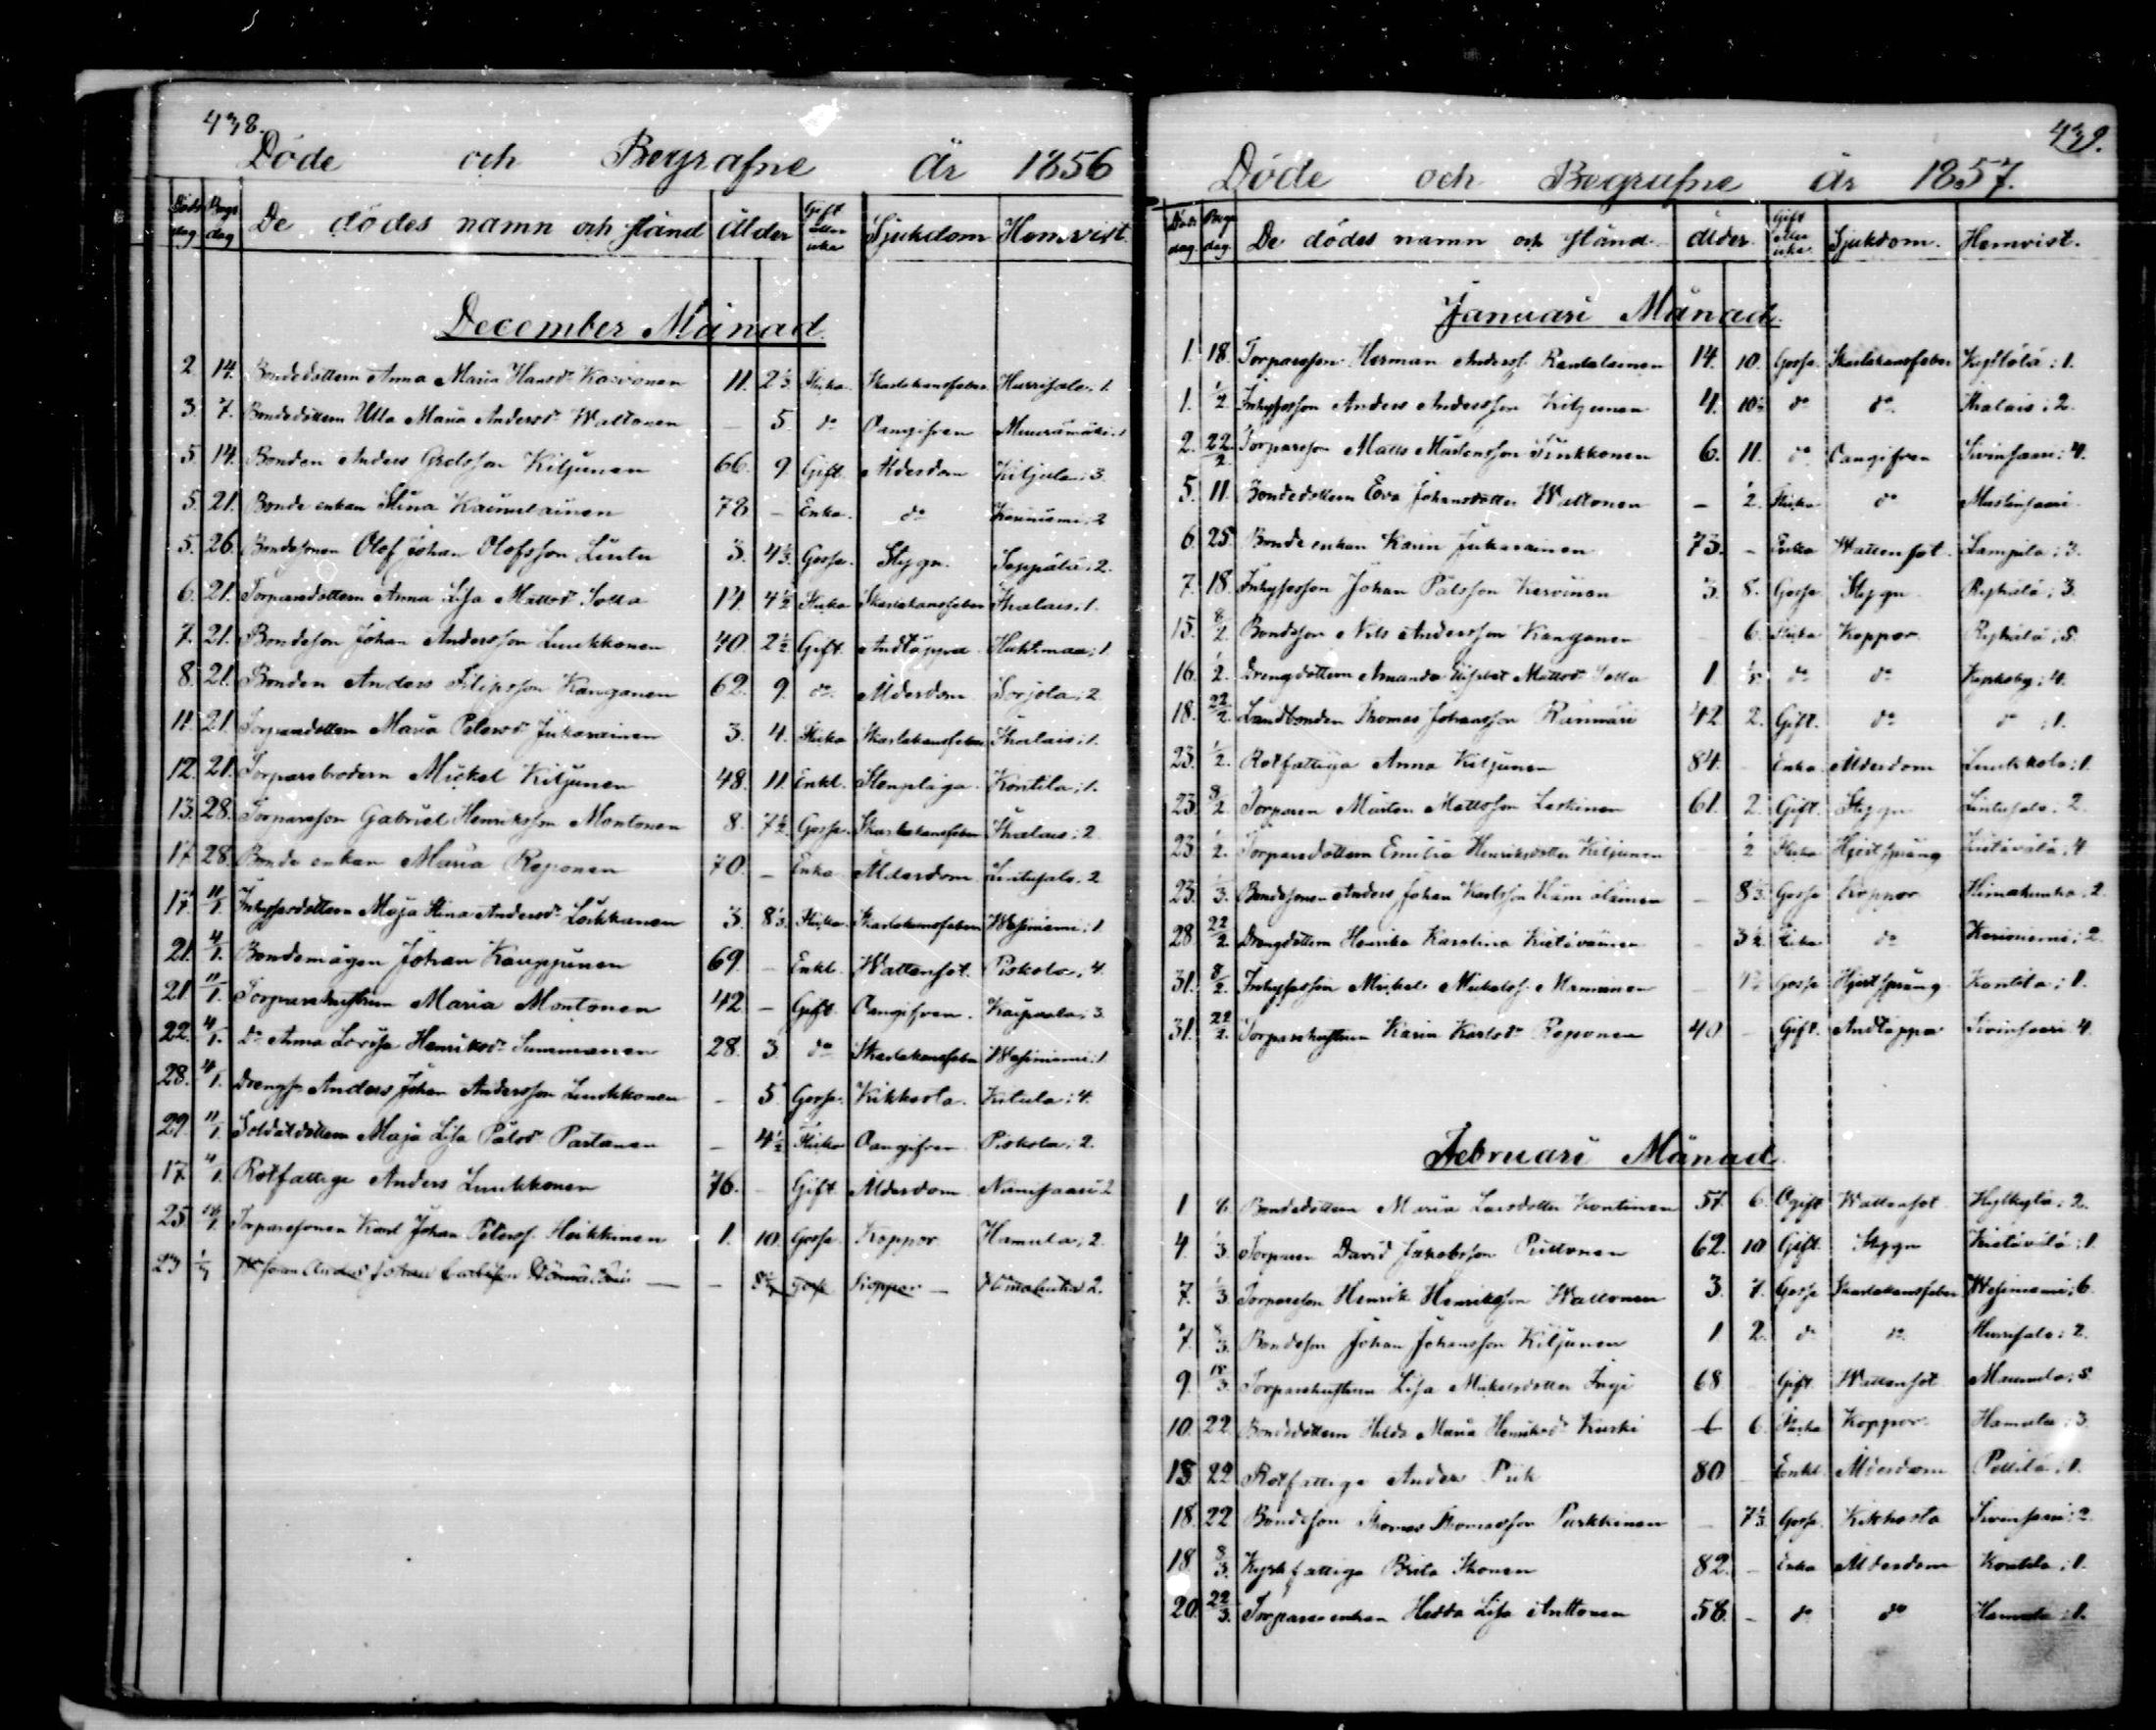 438.
Döde och Begrafne år 1856
Döds dag Begr dag De dödes namn och stånd ålder Gift eller icke Sjukdom Hemvist
December Månad
2 14. Bondedottern Anna Maria Hansdr Koivonen 11. 2 1/3 Flicka Skarlakansfeber Hurrisalo; 1.
3. 7. Bondedottern Ulla Maria Andersdr Waltonen — 5. do Oangifven
5. 14. Bonden Anders Grelsson Kiljunen 66. 9. Gift Ålderdom Kiljula; 3.
5. 21. Bonde enkan Stina Kainulainen 78 – Enka. do Keriniemi; 2
5. 26. Bondesonen Olof Johan Olofsson Lintu 3. 4 1/3 Gosse. Stygn. Seppälä; 2.
6. 21. Torparedottern Anna Lisa Mattsdr Solla 14. 4 1/2 Flicka Skarlakansfeber Ihalais; 1.
7. 21. Bondeson Johan Andersson Luukkonen 40. 2 1/2 Gift Andtäppa Huhtimaa; 1.
8. 21. Bonden Anders Filipsson Kanganen 62. 9. do. Ålderdom Sorjola; 2
11. 21. Torparedottern Maria Petersdr Jukarainen 3. 4. Flicka Skarlakansfeber Ihalais; 1.
12. 21. Torparebrodern Mickel Kiljunen 48. 11. Enkl. Stenplåga Kontila; 1.
13. 28. Torpareson Gabriel Henriksson Montonen 8. 7 1/2 Gosse. Skarlakansfeber Ihalais; 2.
17 28. Bonde enkan Maria Reponen 70. – Enka Ålderdom Lintusalo. 2
17. 11/1. Inhysesdottern Maja Stina Andersdr Loikkanen 3. 8 1/3 Flicka. Skarlakansfebern Wesiniemi; 1
21. 4/1. Bondemågen Johan Kauppinen 69. – Enkl. Wattensot. Piskola; 4.
21. 11/1. Torparehustrun Maria Montonen 42 – Gift. Oangifven. Kaipaala; 3.
22. 4/1. Do Anna Lovisa Henriksdr Summanen 28. 3. do Skarlakansfeber Wesiniemi; 1
28. 4/1. Drengs. Anders Johan Andersson Luukkonen – 5. Gosse. Kikhosta. Kitula; 4.
29. 11/1. Soldatdottern Maja Lisa Pålsdr Partanen – 4 1/2 Flicka Oangifven Piskola; 2.
17 4/1. Rotfattige Anders Luukkonen 76. – Gift Ålderdom Niinisaari 2
25 Torparesonen Karl Johan Peterss. Heikkinen 1. 10. Gosse. Koppor Hamula; 2.
23 1/3 Anders Johan Carlsson Hämäläin — – 8 1/3 Gosse Koppor – Himahuhta 2.
439.
Döde och Begrafne år 1857.
Döds dag Begr dag De dödes namn och stånd ålder Gift eller icke Sjukdom. Hemvist.
Januari Månad.
1. 18. Torpareson Herman Anderss. Rantalainen 14. 10. Gosse. Skarlakansfeber Kyllölä; 1.
1. 1/2. Inhysesson Anders Andersson Kiljunen 4. 10 1/2 do do Ihalais; 2.
2. 22/2. Torpareson Matts Mårtensson Sinkkonen 6. 11. do Oangifven Sivinsaari; 4.
5. 11. Bondedottern Eva Johansdotter Waltonen – 1/2. Flicka do Mustinsaari
6. 25. Bonde enkan Karin Jukarainen 73. – Enka Wattensot Lampila; 3.
7. 18. Inhysesson Johan Pålsson Kervinen 3. 8. Gosse Stygn Ryhälä; 3.
15. 8/2. Bondeson Nils Andersson Kanganen – 6. Flicka Koppor Ryhälä; 5.
16. 1/2. Drengdottern Amanda Elisabet Mattsdr Solla 1. do do Kyrkoby; 4.
18. 22/2. Landbonden Thomas Johansson 42 2. Gift. do do; 1.
23. 1/2. Rotfattiga Anna Kiljunen 84. – Enka Ålderdom Luukkola; 1.
23. 8/2. Torparen Mårten Mattsson Leskinen 61. 2 Gift. Stygn Lintusalo. 2.
23 1/2. Torparedottern Emilia Henriksdotter Kiljunen 1/2 Flicka Hjertsprång Kietävälä; 4
23. 1/3. Bondesonen Anders Johan Karlsson Hämäläinen – 8 1/3 Gosse Koppor Himahuhta. 2.
28 22/2. Drengdottern Henrika Karolina Kietäväinen – 3 1/2 Flicka do Keriniemi; 2.
31. 8/2. Inhysesson Mickel Mickelss. Manninen – Gosse Hjertsprång Kontila; 1.
31. 22/2. Torparehustrun Karin Karlsdr Reponen 40 – Gift. Andtäppa Sivinsaari 4.
Februari Månad.
1 Bondedottern Maria Larsdotter Kontinen 57 6. Ogift Wattensot Hylkylä; 2.
4. 1/3. Torparen David Jakobsson Puttonen 62. 10 Gift Stygn Kietävälä; 1.
7. 1/3. Torpareson Henrik Henriksson Waltonen 3. 7. Gosse Skarlakansfeber Wesiniemi; 6.
7. 8/3. Bondeson Johan Johansson Kiljunen 1 2. do do. Hurrisalo; 2.
9. 15/3. Torparehustrun Lisa Mickelsdotter Ingi 68 – Gift Wattensot Maunula; 5.
10 22 Bondedottern Hilda Maria Henriksdr Kurki 6. Flicka Koppor Hamula; 3.
15 22 Rotfattige Anders Piik 80 – Enkl. Ålderdom Pellilä; 1.
18. 22 Bondeson Thomas Thomasson Purkkinen – 7 1/3 Gosse. Kikhosta Sivinsaari; 2.
18 8/3. Kyrkfattiga Brita Ihonen 82. – Enka Ålderdom Kontila; 1.
20. 22/3. Torpareenkan Hedda Lisa Anttonen 58. – do do Hamula; 1.